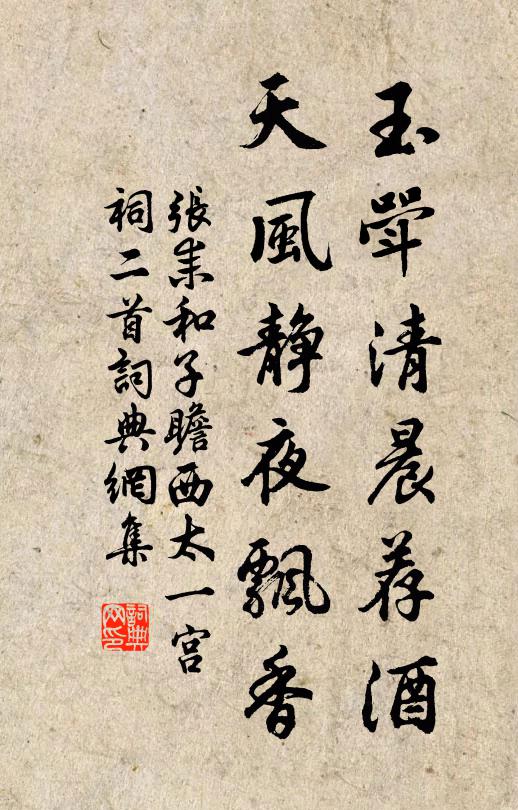 玉斝清晨荐酒
天風静夜飄香
張耒和子瞻西太一宮
祠二首詞典網集
詞典
网印